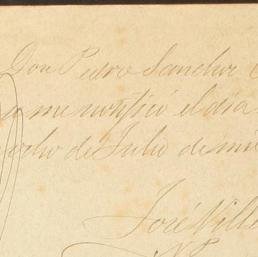 Don Pedro Sanchez
a me notificó el dia
ocho de Julio de mil
José Ville